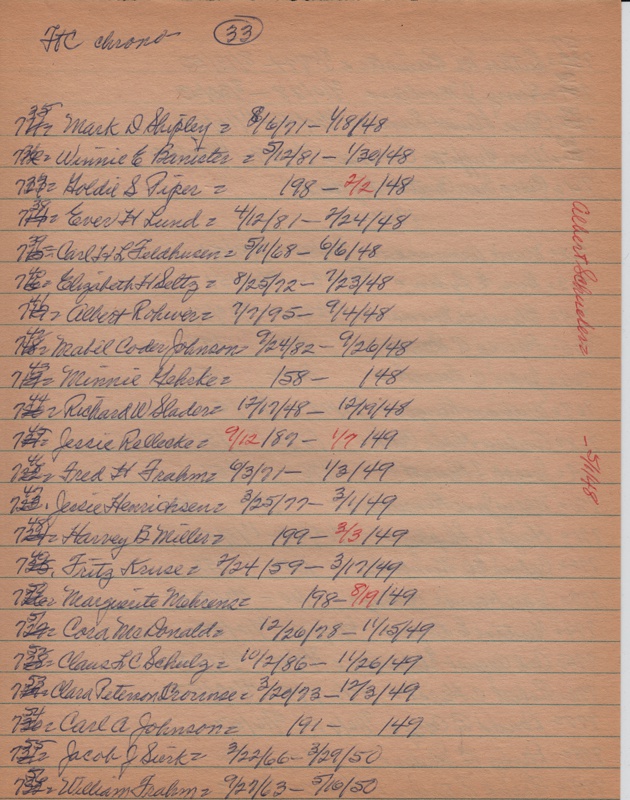 FHC chrono (33)
735= Mark D Shipley = 8/6/71 – 4/18/48
736= Winnie E Banister = 5/12/81 – 1/30/48
737= Goldie S Piper = 198 – 2/2/48
738= Ever H Lund = 4/12/81 – 2/24/48
739= Carl H L Feldhusen = 5/11/68 – 6/6/48
740= Elizabeth H Seltz = 8/25/72 – 7/23/48
741= Albert Rohwer = 7/7/95 – 9/4/48
742= Mabil Coder Johnson = 9/24/82 – 9/26/48
743= Minnie Gehrke = 158 – 148
744= Richard W Slader = 12/17/48 – 12/19/48
745= Jessie Rellecke = 9/12/87 – 1/7/49
746= Fred H Frahm = 6/3/71 – 1/3/49
747. Jessie Henrichsen = 3/25/77 – 3/1/49
748= Harvey B Miller = 199 – 3/3/49
749. Fritz Kruse = 2/24/59 – 3/17/49
750= Marguerite Mehrens = 198 – 8/19/49
751= Cora McDonald = 12/26/78 – 11/15/49
752= Claus L C Schulz = 10/2/86 – 11/26/49
753= Clara Peterson = 3/20/73 – 12/3/49
754= Carl A Johnson = 191 – 149
755= Jacob J Sierk = 3/22/66 – 3/29/50
756= William Frahm = 9/27/63 – 5/16/50
Albert Schueler = – 5/1/48